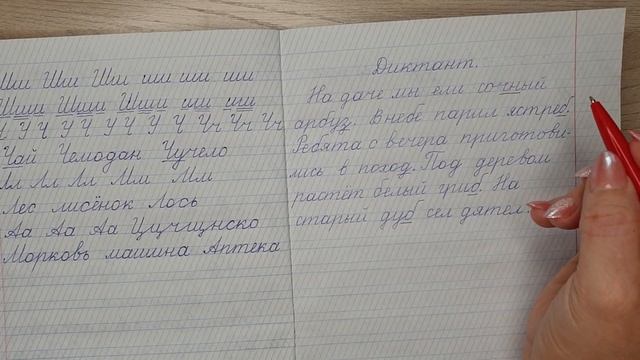 Шш Шш Шш шш шш шш
Шшш Шшш Шшш шш шш
Ч Ч Ч Ч Ч Ч Ч Чч Чч Чч
Чай Чемодан Чучело
Лл Лл Лл Мм Мм
Лес лисёнок Лось
Аа Аа Аа
Морковь машина Аптека
Диктант.
На даче мы ели сочный
арбуз. В небе парил ястреб.
Ребята с вечера приготови-
лись в поход. Под деревом
растёт белый гриб. На
старый дуб сел дятел.